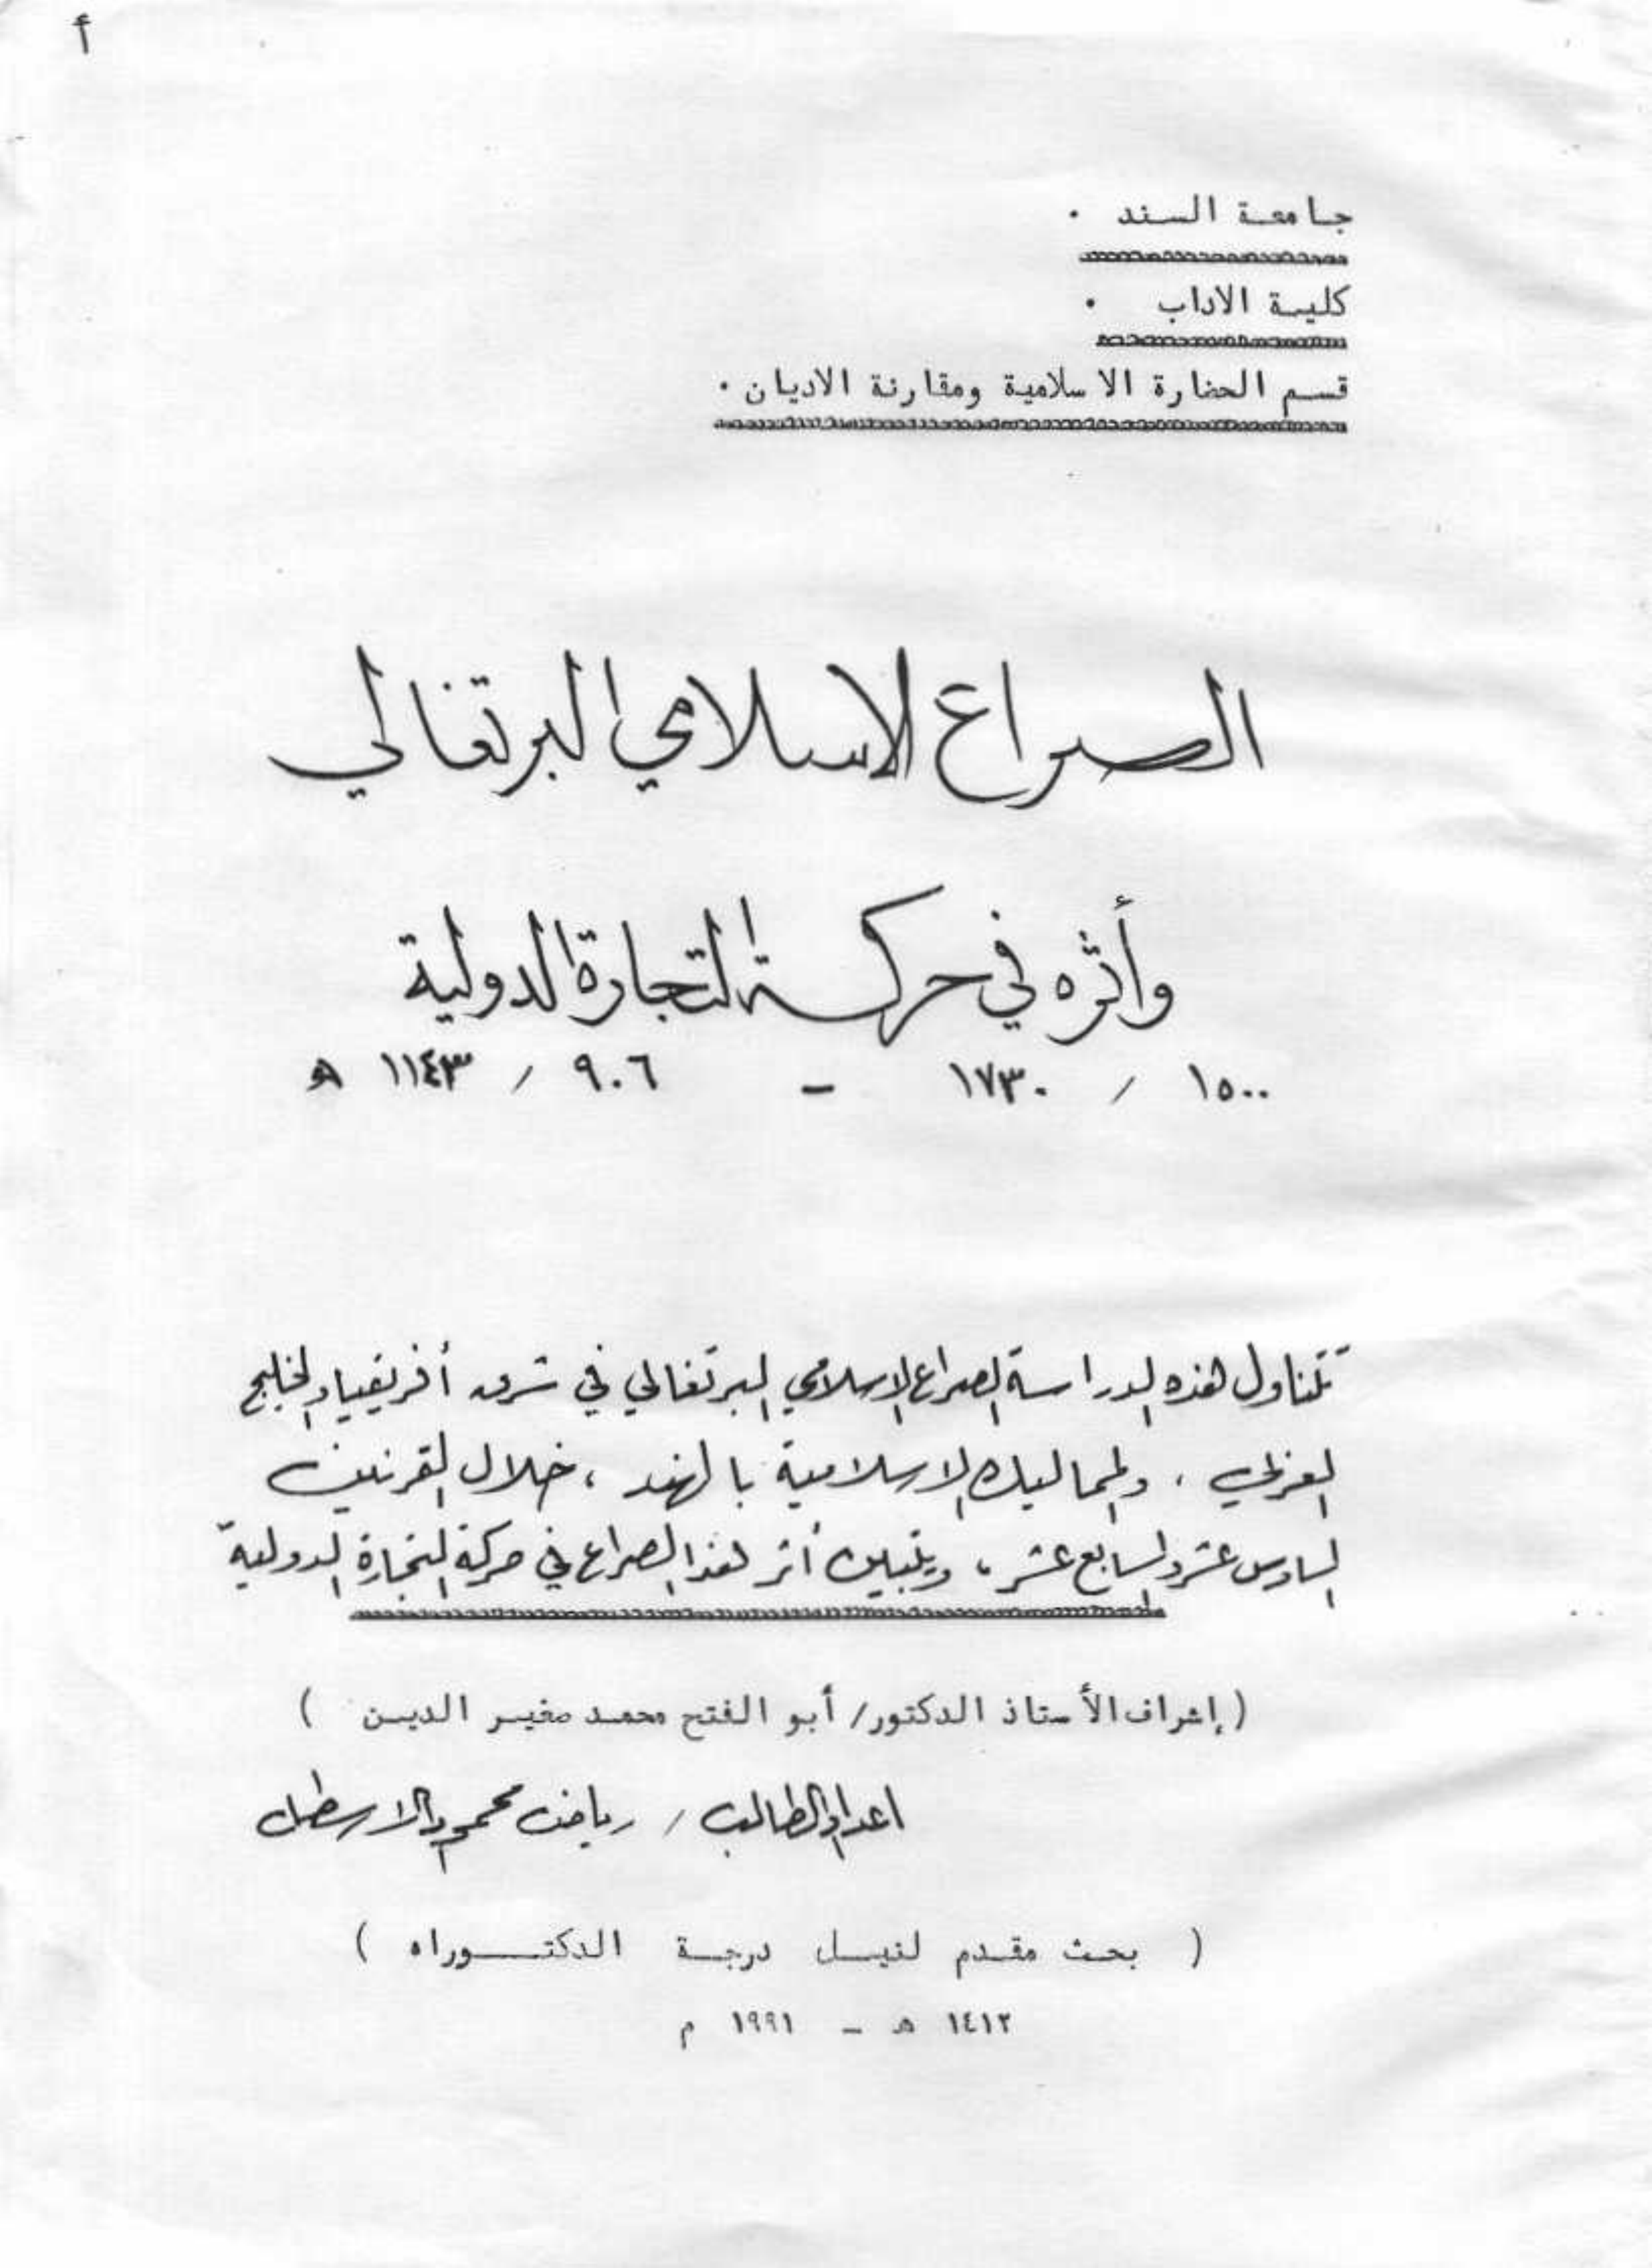 أ
جامعة السند .
كلية الاداب .
قسم الحضارة الاسلامية ومقارنة الاديان .
الصراع الاسلامي البرتغالي
وأثره في حركة التجارة الدولية
١٥٠٠ / ١٧٣٠ - ٩٠٦ / ١١٤٣ ه
تتناول هذه الدراسة الصراع الاسلامي البرتغالي في شرق أفريقيا والخليج
العربي ، والممالك الاسلامية بالهند ، خلال القرنين
السادس عشر والسابع عشر ، ويتبين أثر هذا الصراع في حركة التجارة الدولية
( إشراف الأستاذ الدكتور / أبو الفتح محمد صغير الدين )
اعداد الطالب / رياض محمود الاسطل
( بحث مقدم لنيل درجة الدكتوراه )
١٤١٢ ه - ١٩٩١ م